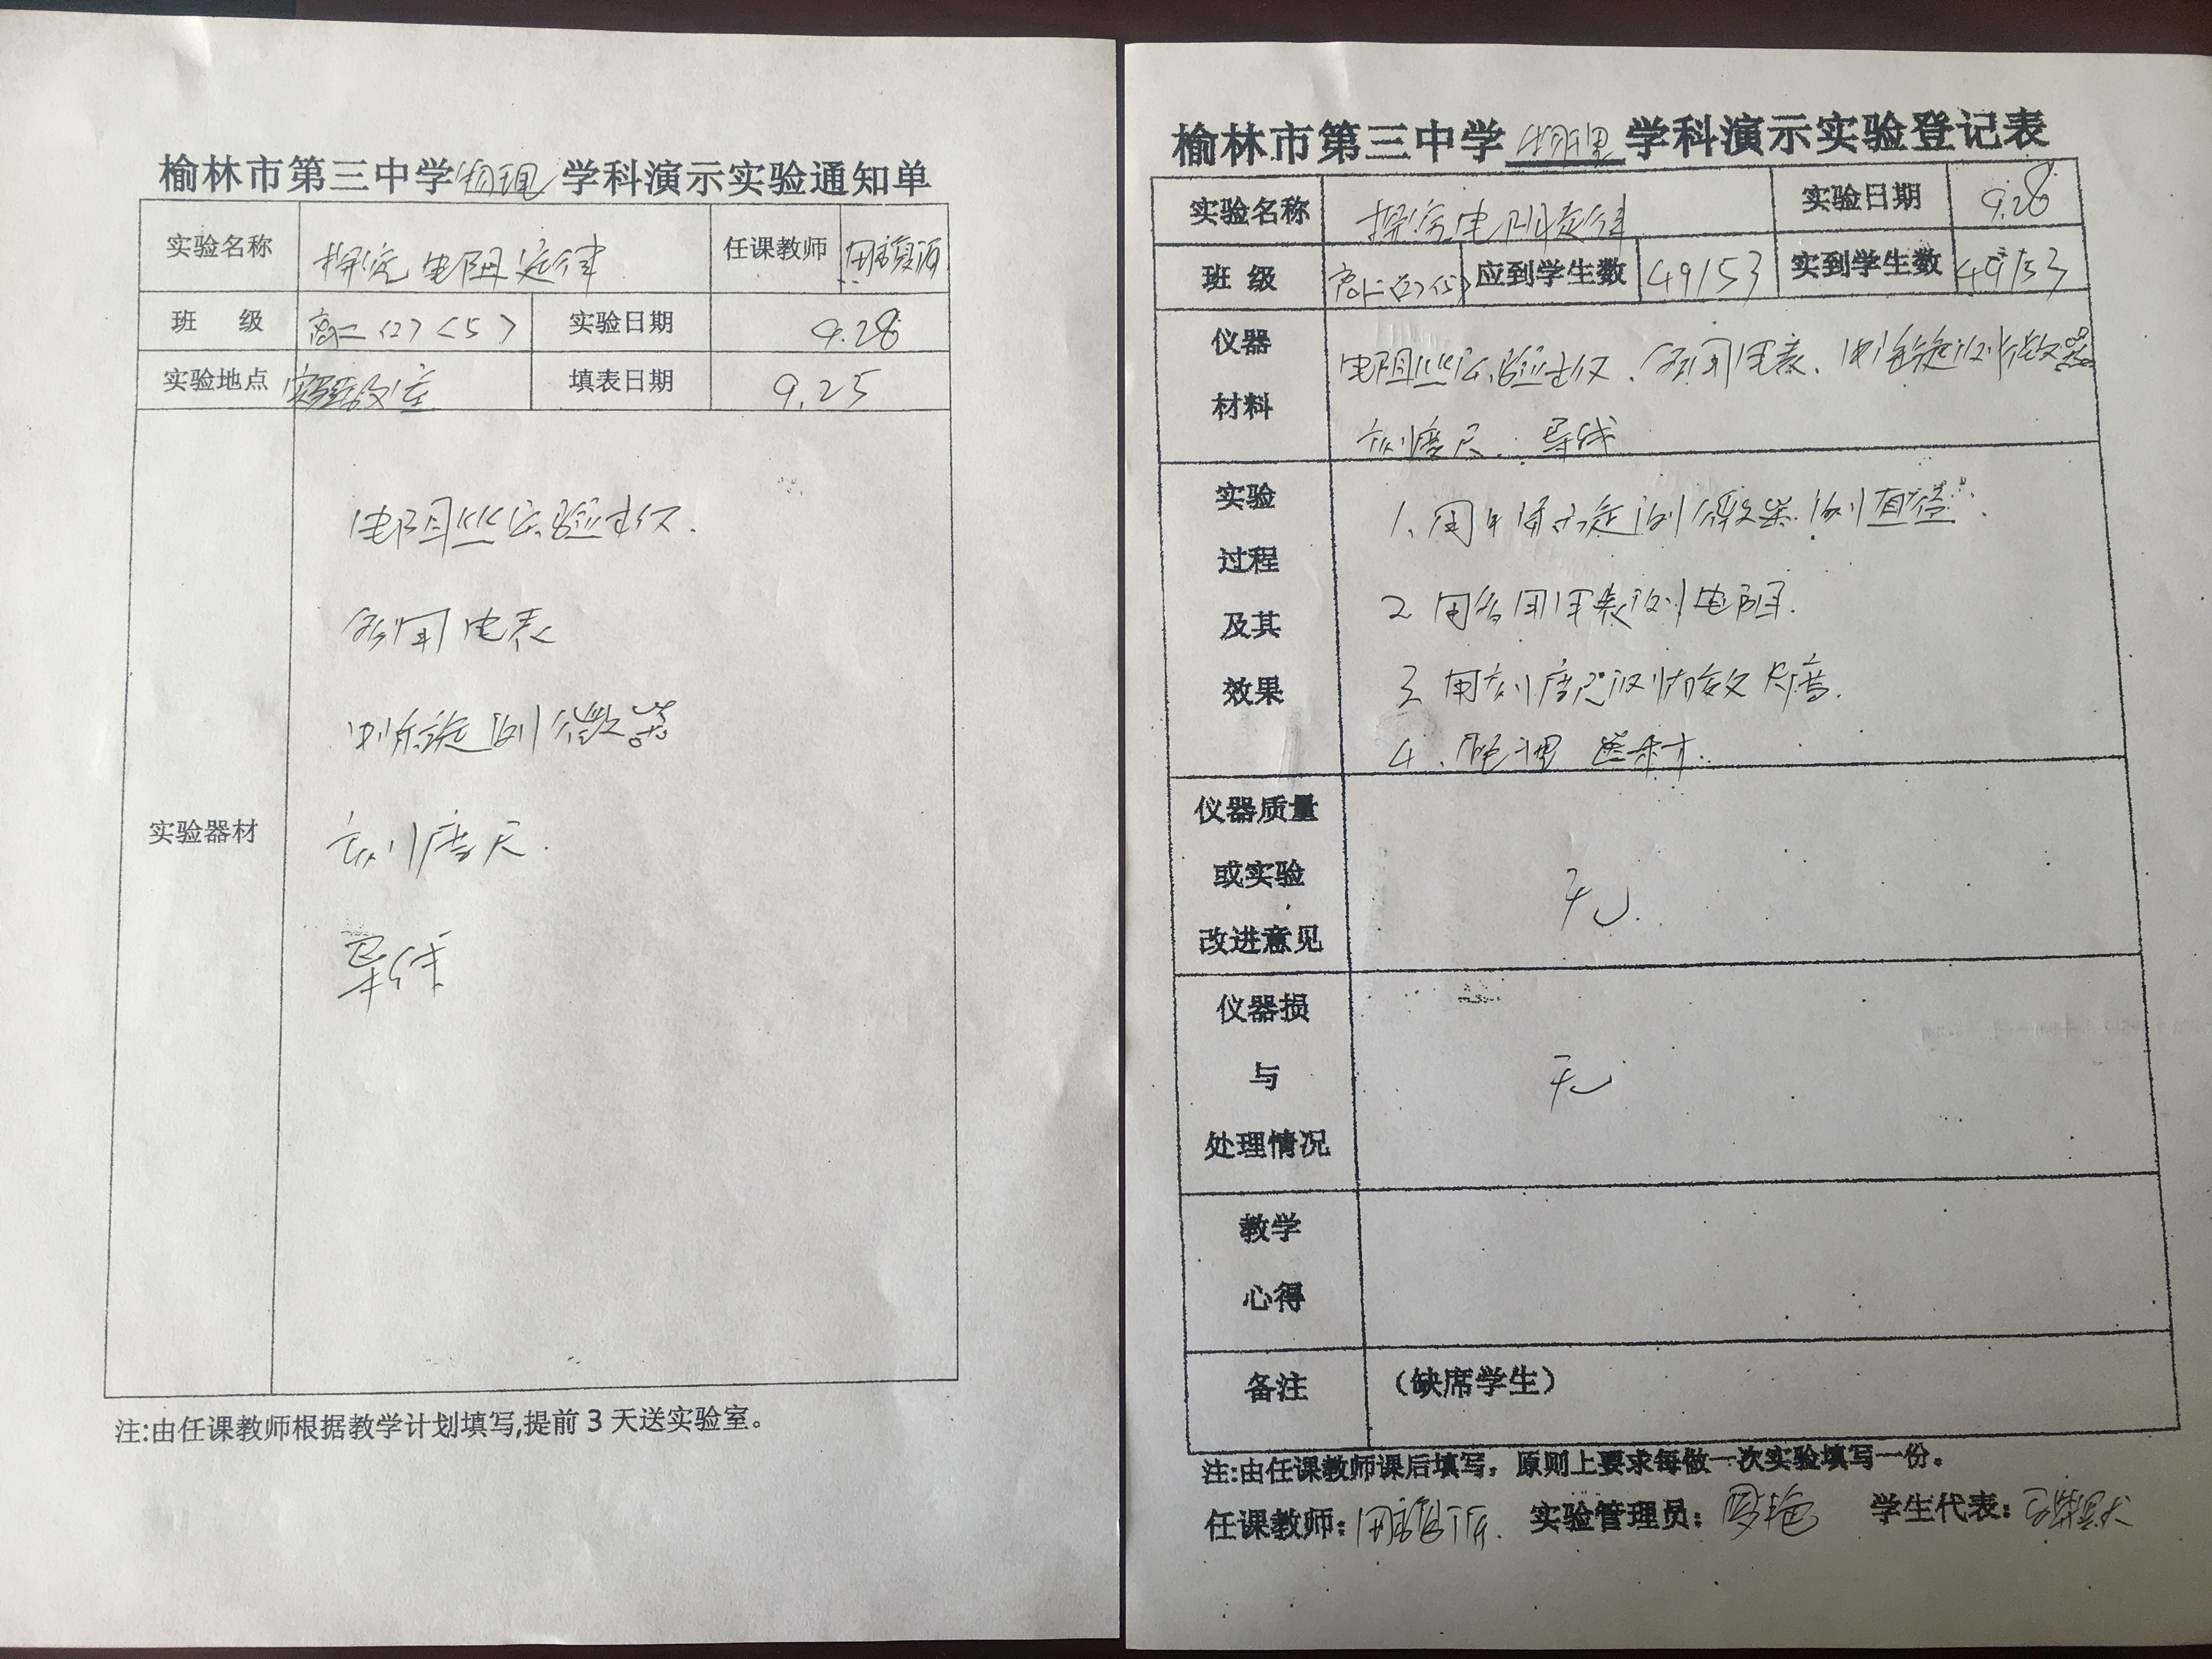 榆林市第三中学物理学科演示实验通知单
实验名称 探究电阻定律 任课教师
班 级 高二（2）（5） 实验日期 9.28
实验地点 实验室 填表日期 9.25
实验器材
电阻丝实验仪.
多用电表
螺旋测微器
刻度尺.
导线
注:由任课教师根据教学计划填写,提前3天送实验室。
榆林市第三中学物理学科演示实验登记表
实验名称 探究电阻定律 实验日期 9.28
班 级 高二（2）（5） 应到学生数 49/53 实到学生数 49/53
仪器
材料
电阻丝实验仪、多用电表、螺旋测微器
刻度尺、导线
实验
过程
及其
效果
1、用螺旋测微器测直径.
2 用多用电表测电阻.
3 用刻度尺测有效长度.
4、
仪器质量
或实验
改进意见
无.
仪器损
与
处理情况
无
教学
心得
备注 （缺席学生）
注:由任课教师课后填写，原则上要求每做一次实验填写一份。
任课教师: 实验管理员: 学生代表: